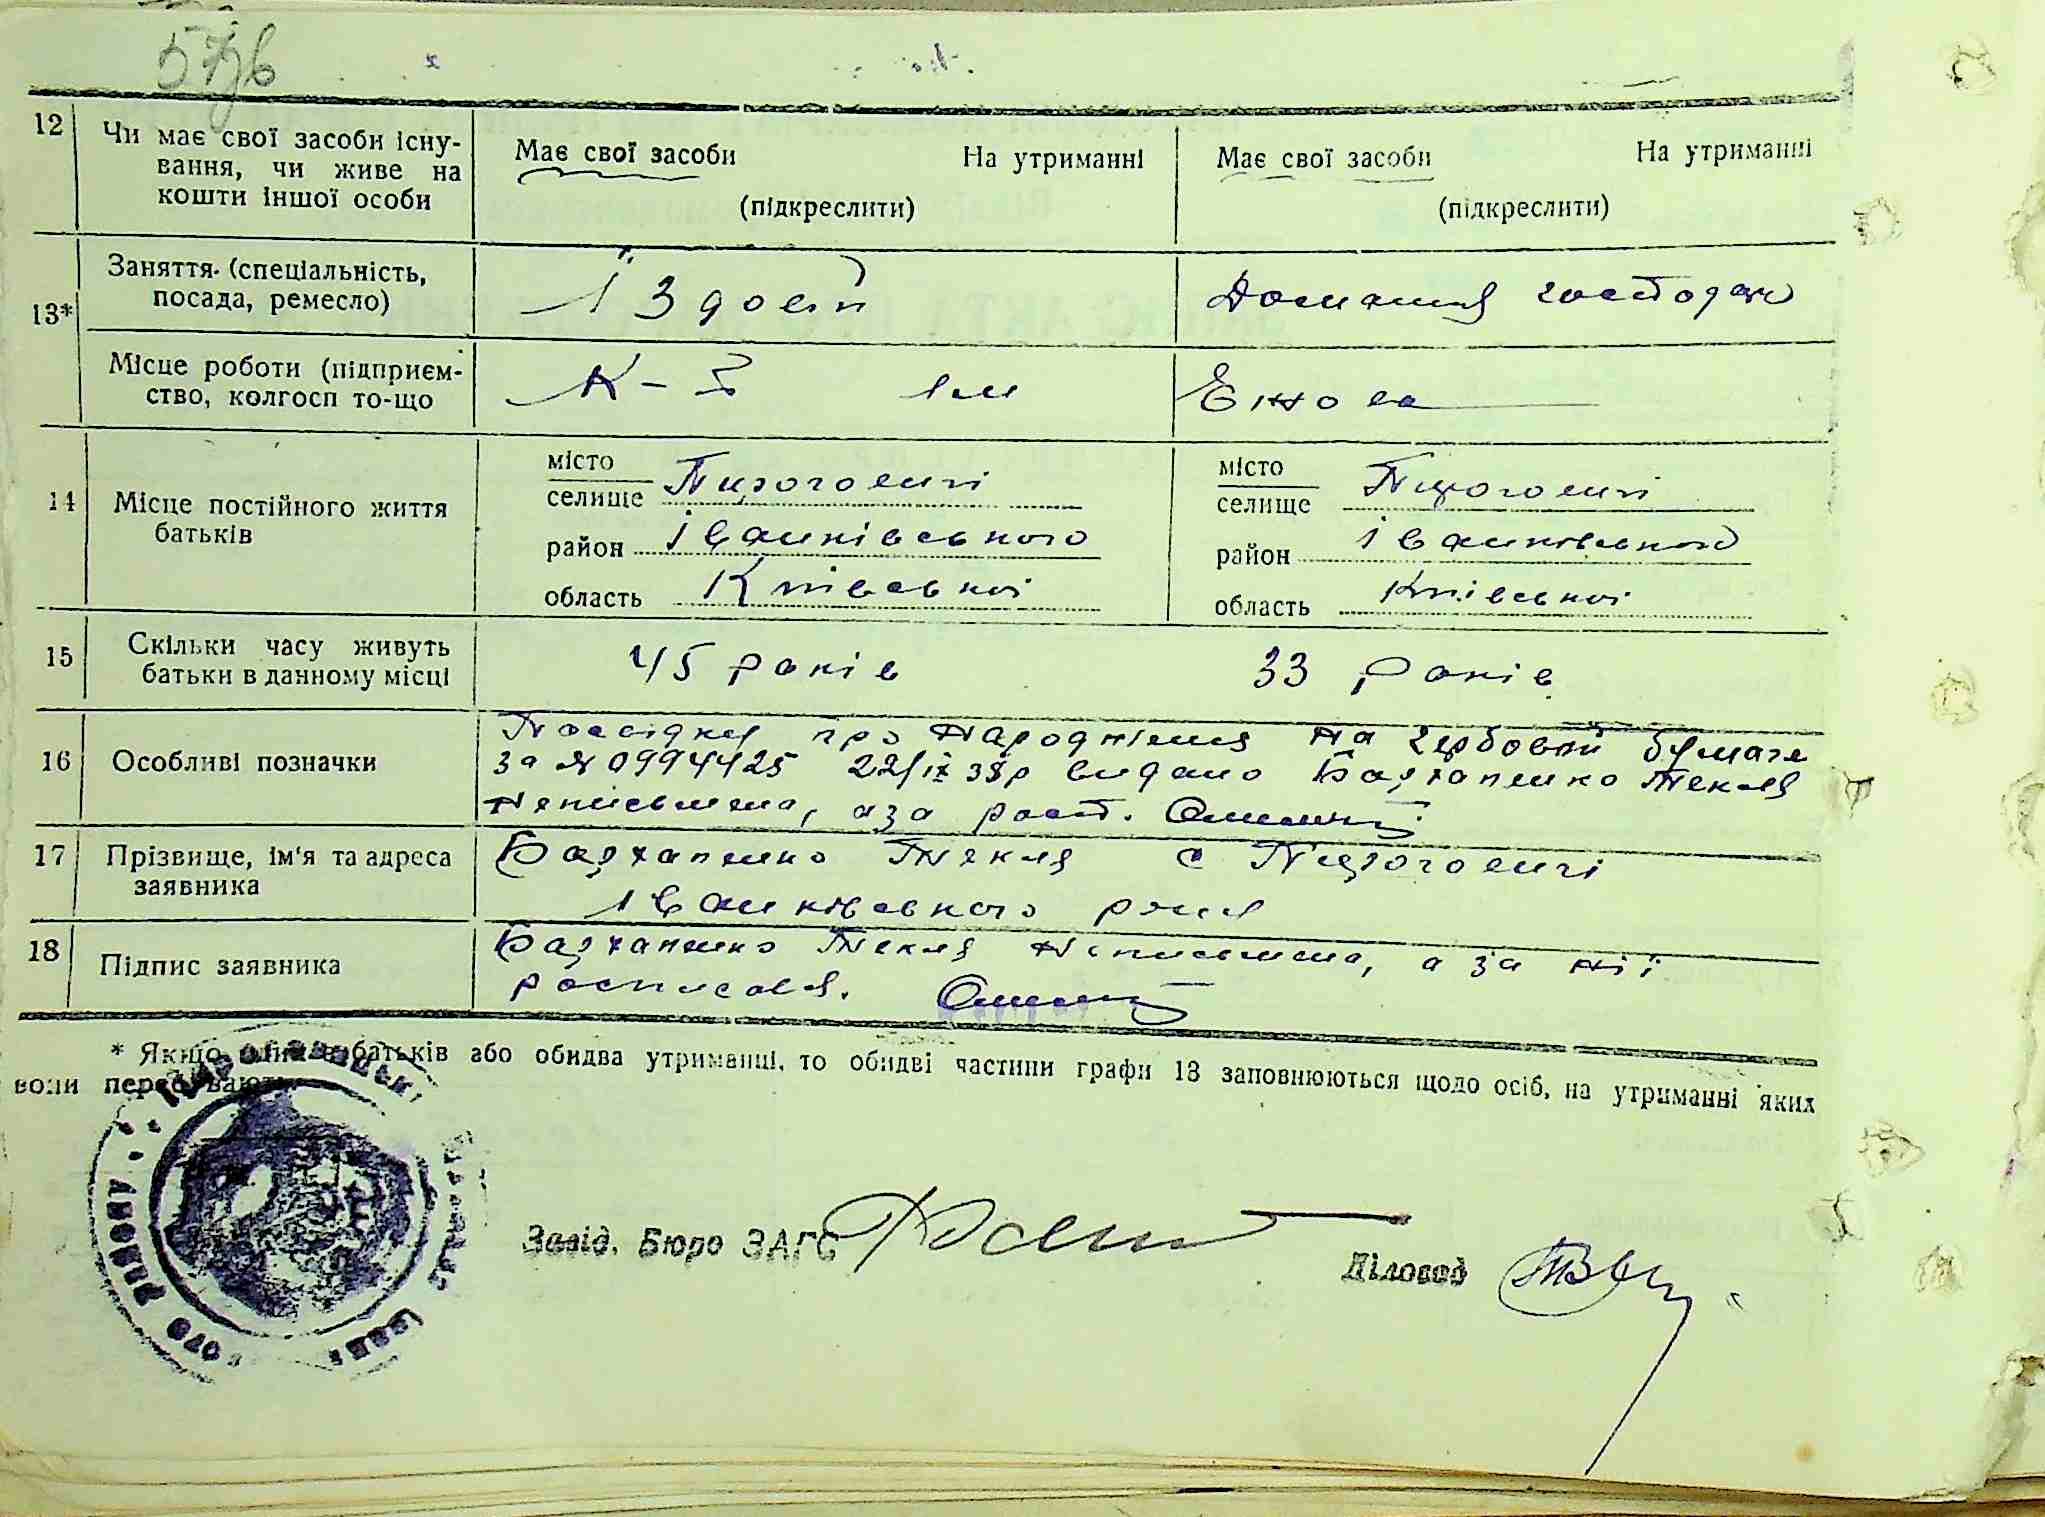 57зв
12 Чи має свої засоби існу-
вання, чи живе на
кошти іншої особи
Має свої засоби На утриманні
(підкреслити)
Має свої засоби На утриманні
(підкреслити)
13* Заняття (спеціальність,
посада, ремесло)
Їздовий
Домашня господар
Місце роботи (підприєм-
ство, колгосп то-що
К-З ім Ежова
14 Місце постійного життя
батьків
місто
селище Пироговичі
район Іванківського
область Київської
місто
селище Пироговичі
район Іванківського
область Київської
15 Скільки часу живуть
батьки в данному місці
45 років
33 років
16 Особливі позначки
Посвідку про народження на гербовій бумаге
за № 0994425 22/ІХ 38р видано Бархаленко Текля
неписьмена, а за рост.
17 Прізвище, ім'я та адреса
заявника
Бархаленко Текля с Пироговичі
Іванківського р-ну
18 Підпис заявника
Бархаленко Текля неписьмена, а за неї
росписався.
* Якщо батьків або обидва утриманні, то обидві частини графи 13 заповнюються щодо осіб, на утриманні яких
вони перебувають
Завід. Бюро ЗАГС
Діловод